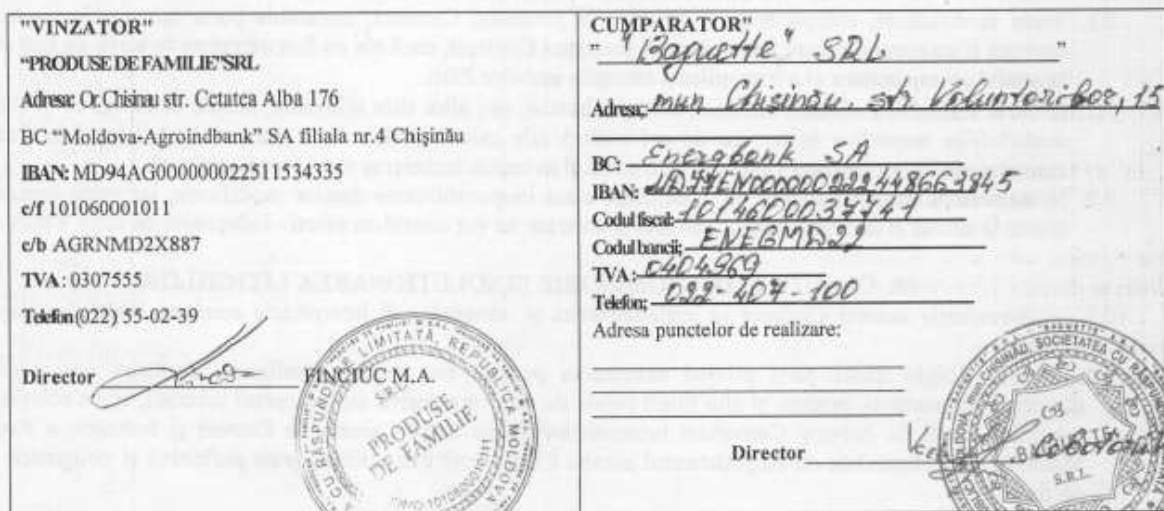 "VINZATOR"
"PRODUSE DE FAMILIE"SRL
Adresa: Or. Chisinau str. Cetatea Alba 176
BC "Moldova-Agroindbank" SA filiala nr.4 Chişinău
IBAN: MD94AG000000022511534335
c/f 101060001011
c/b AGRNMD2X887
TVA : 0307555
Telefon (022) 55-02-39
Director FINCIUC M.A.
CU RĂSPUNDERE LIMITATĂ, REPUBLICA MOLDOVA
PRODUSE
DE FAMILIE
CUMPARATOR"
" "Baguette" SRL "
Adresa: mun Chişinău, str Voluntarilor, 15
BC: Energbank SA
IBAN:
Codul fiscal: 1014600037747
Codul bancii: ENEGMD22
TVA : 0404969
Telefon: 022-407-100
Adresa punctelor de realizare:
Director
BAGUETTE
SOCIETATEA CU
CHIŞINĂU
S.R.L.